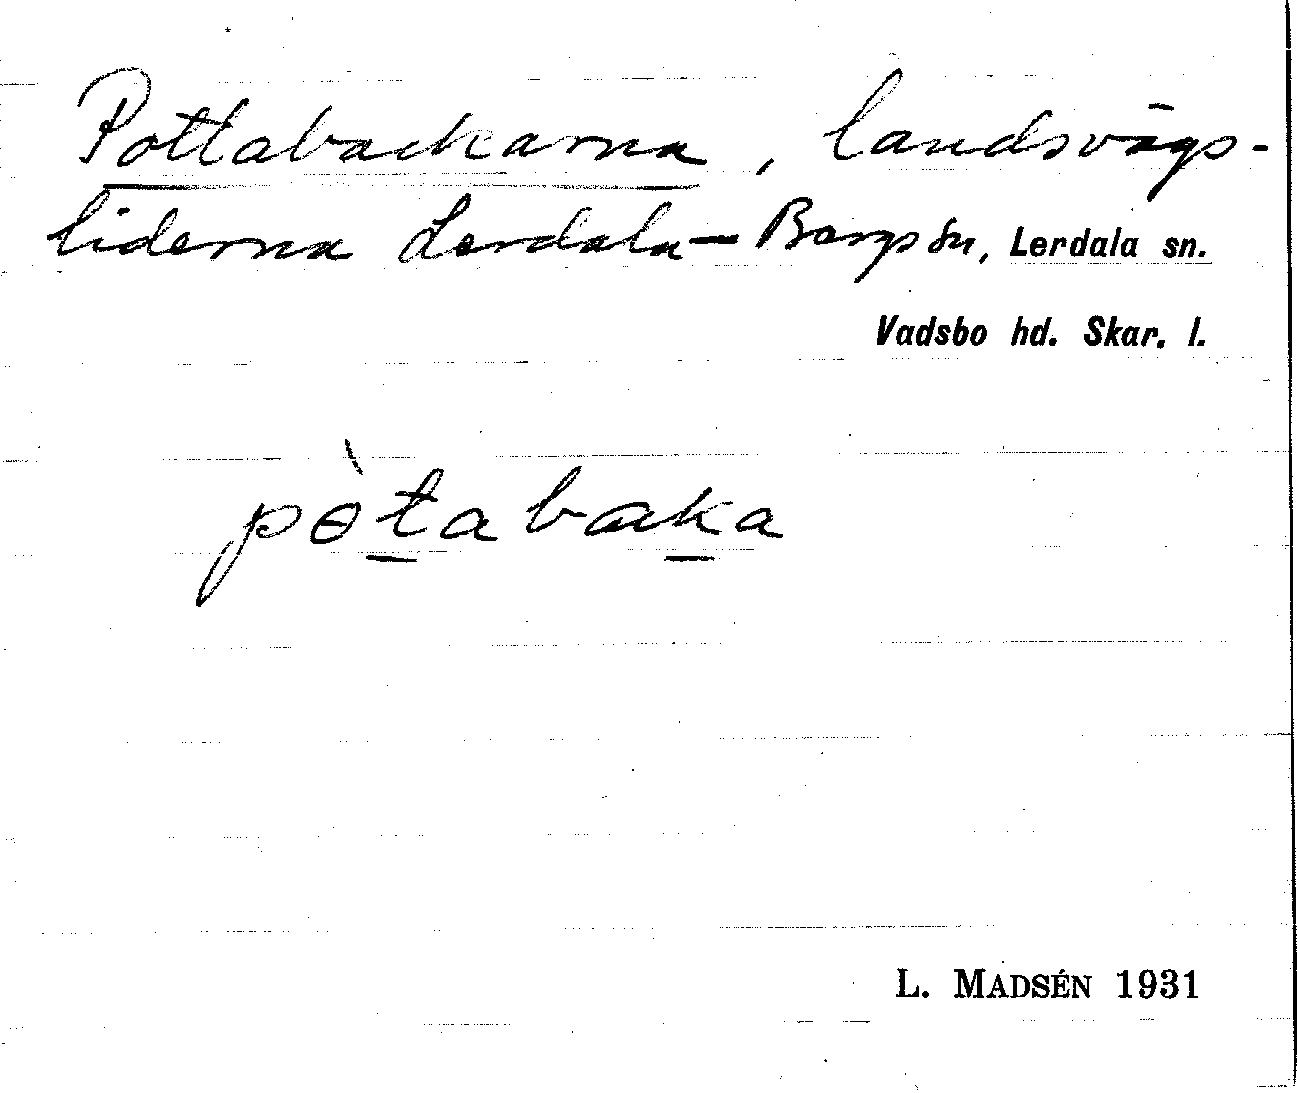 Pottabackarna, landsvägs-
liderna Lerdala—Bergs sn, Lerdala sn.
Vadsbo hd. Skar. l.
pɵ̀ta baka
L. MADSÉN 1931